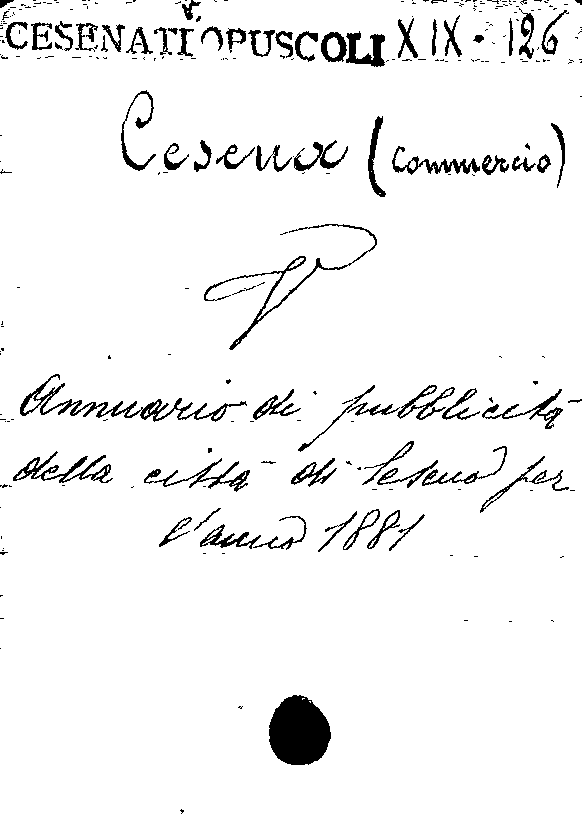 CESENATI OPUSCOLI XIX - 126
Cesena (Commercio)
V
Annuario di pubblicità
della città di Cesena per
l'anno 1881